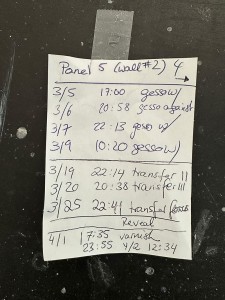 Panel 5 (wall #2) 4
3/5 17:00 gesso w/
3/6 20:58 gesso against
3/7 22:13 gesso w/
3/9 10:20 gesso w/
3/19 22:14 transfer II
3/20 20:38 transfer III
3/25 22:41 transfer
Reveal
4/1 17:35 varnish
23:55 4/2 12:34